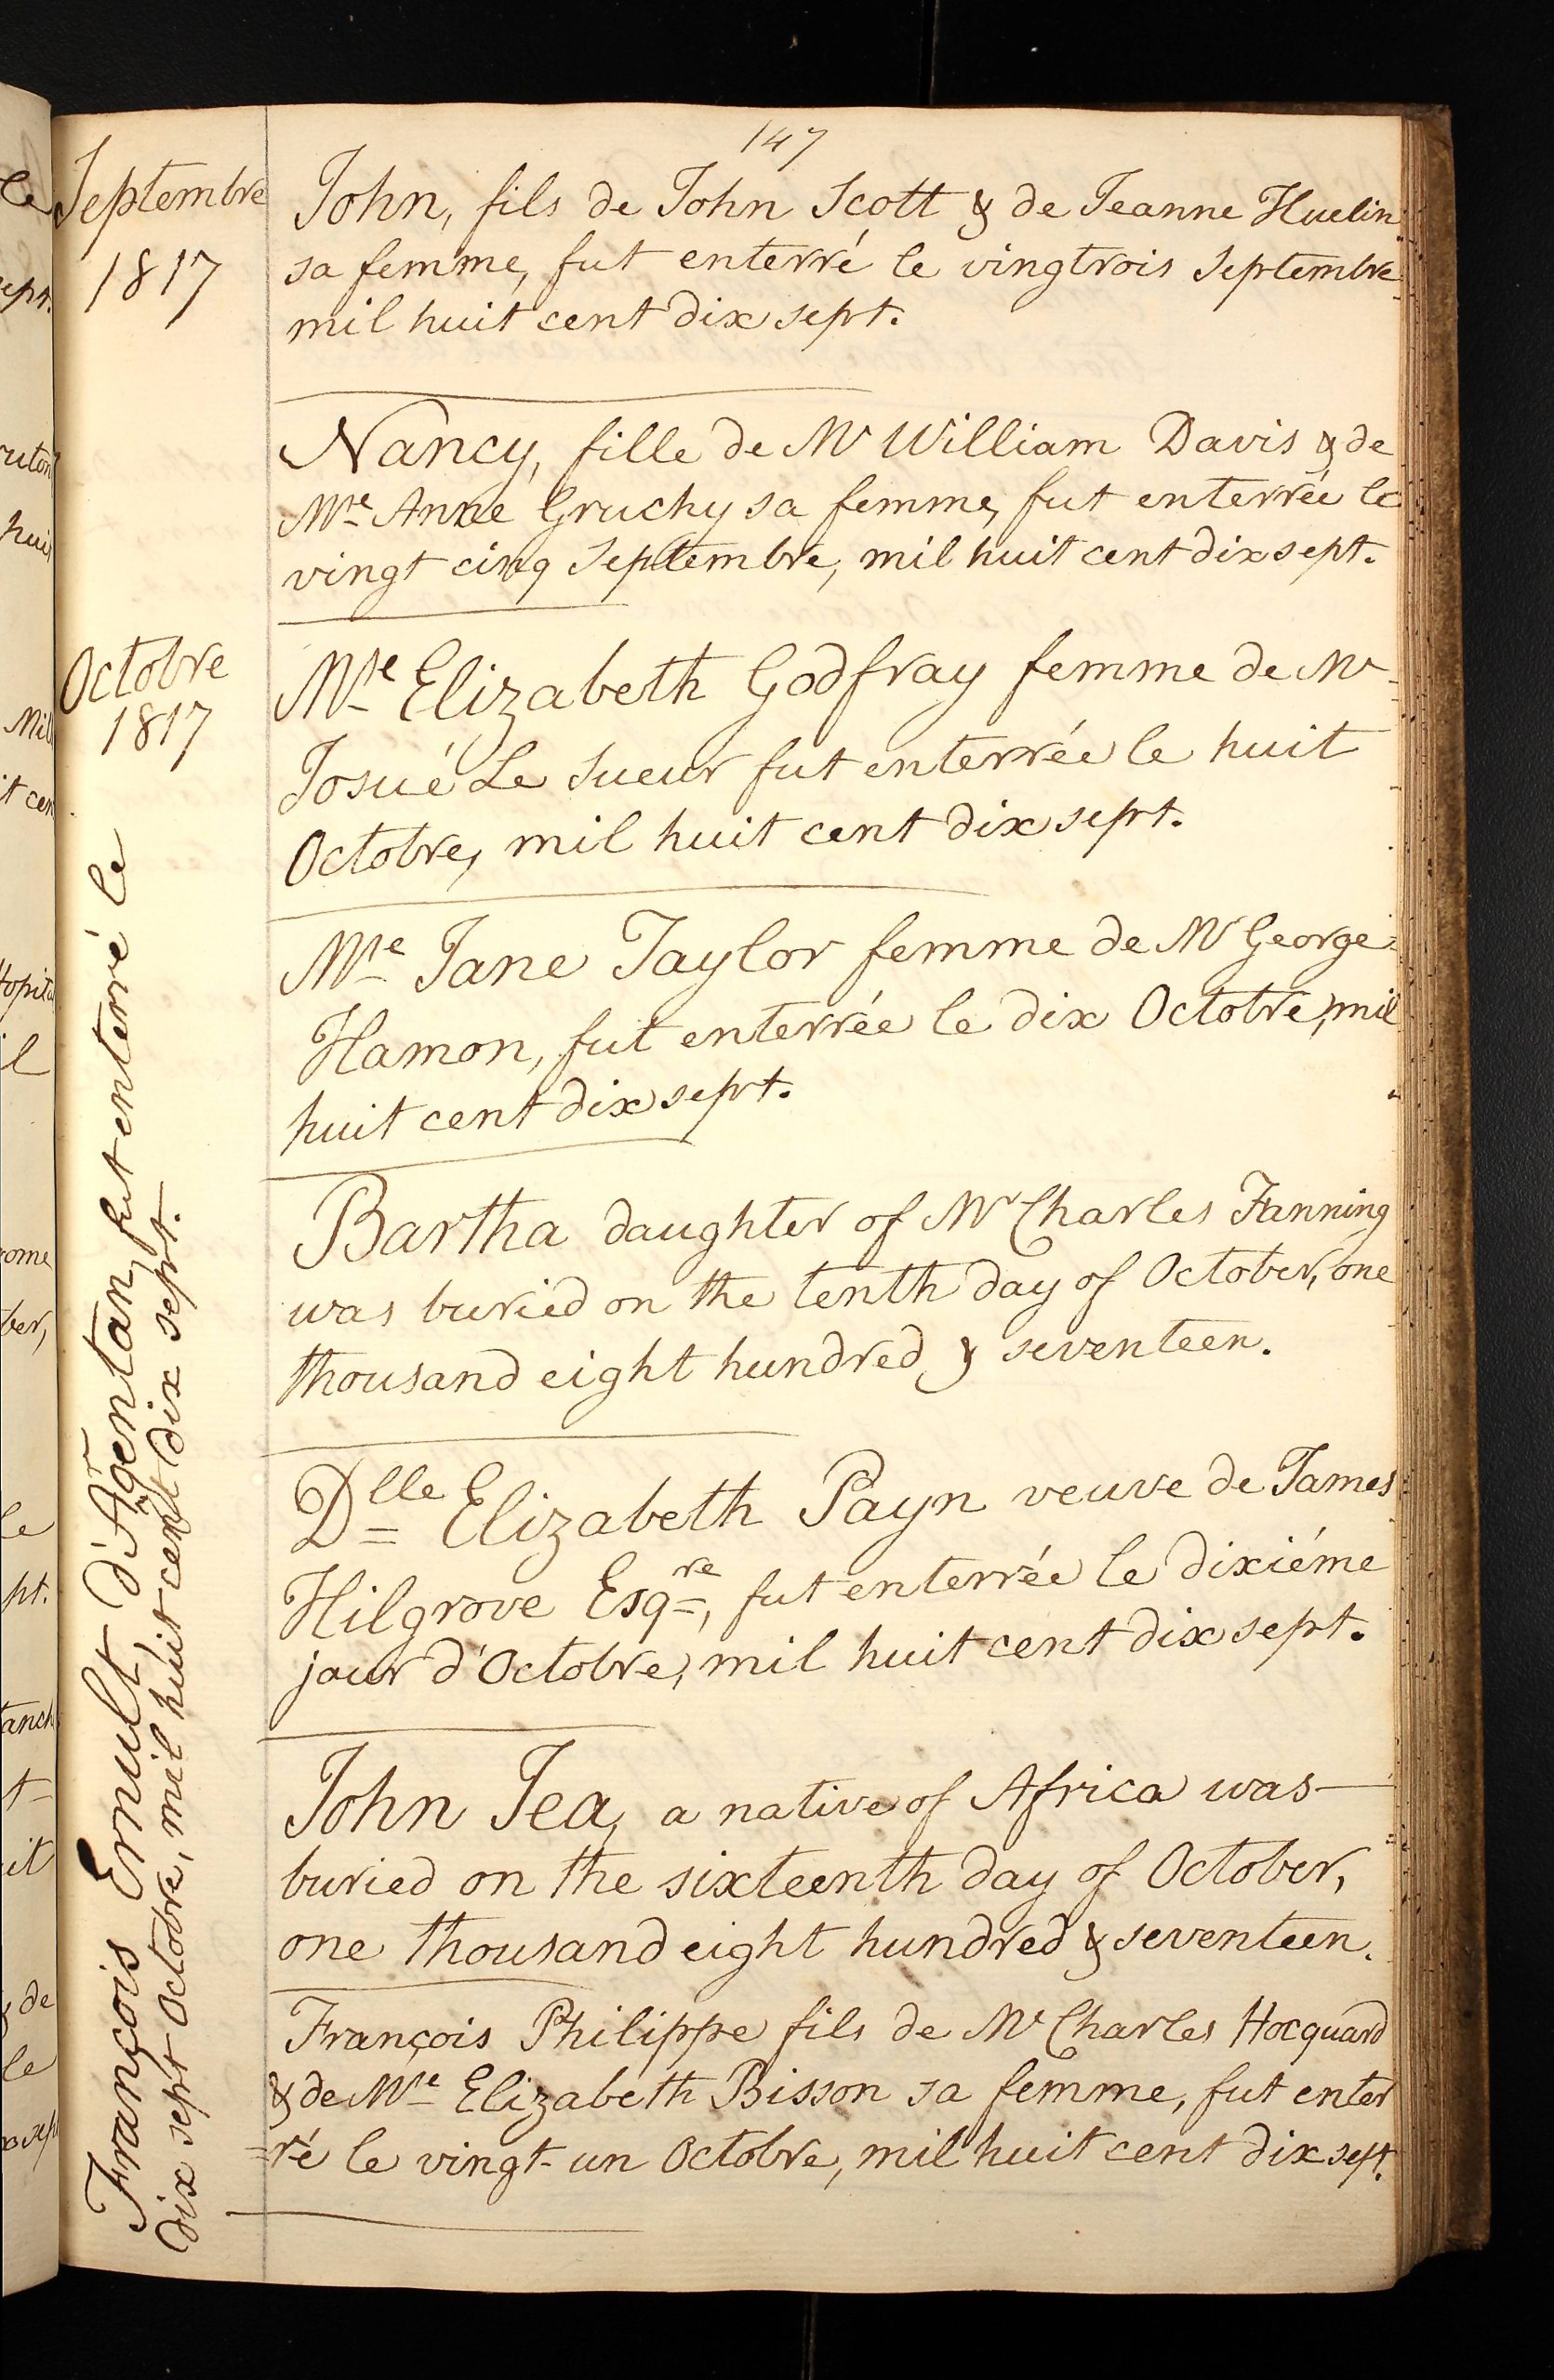 147
Septembre
1817
John, fils de John Scott & de Jeanne Huelin
sa femme, fut enterré le vingtrois Septembre
mil huit cent dix sept.
Nancy, fille de Mr William Davis & de
Mse Anne Gruchy sa femme, fut enterrée le
vingt cinq Septembre, mil huit cent dix sept.
Octobre
1817
Mse Elizabeth Godfray femme de Mr
Josué Le Sueur fut enterrée le huit
Octobre, mil huit cent dix sept.
Mse Jane Taylor femme de Mr George
Hamon, fut enterrée le dix Octobre, mil
huit cent dix sept.
Bartha daughter of Mr Charles Fanning
was buried on the tenth day of October, one
thousand eight hundred & seventeen.
Dlle Elizabeth Payn veuve de James
Hilgrove Esqre, fut enterrée le dixiéme
jour d'Octobre, mil huit cent dix sept.
John Jea, a native of Africa was
buried on the sixteenth day of October,
one thousand eight hundred & seventeen.
François Philippe fils de Mr Charles Hocquard
& de Mse Elizabeth Bisson sa femme, fut enter
=ré le vingt-un Octobre, mil huit cent dix sept.
François Ernult d'Argentan, fut enterré le
dix sept Octobre, mil huit cent dix sept.